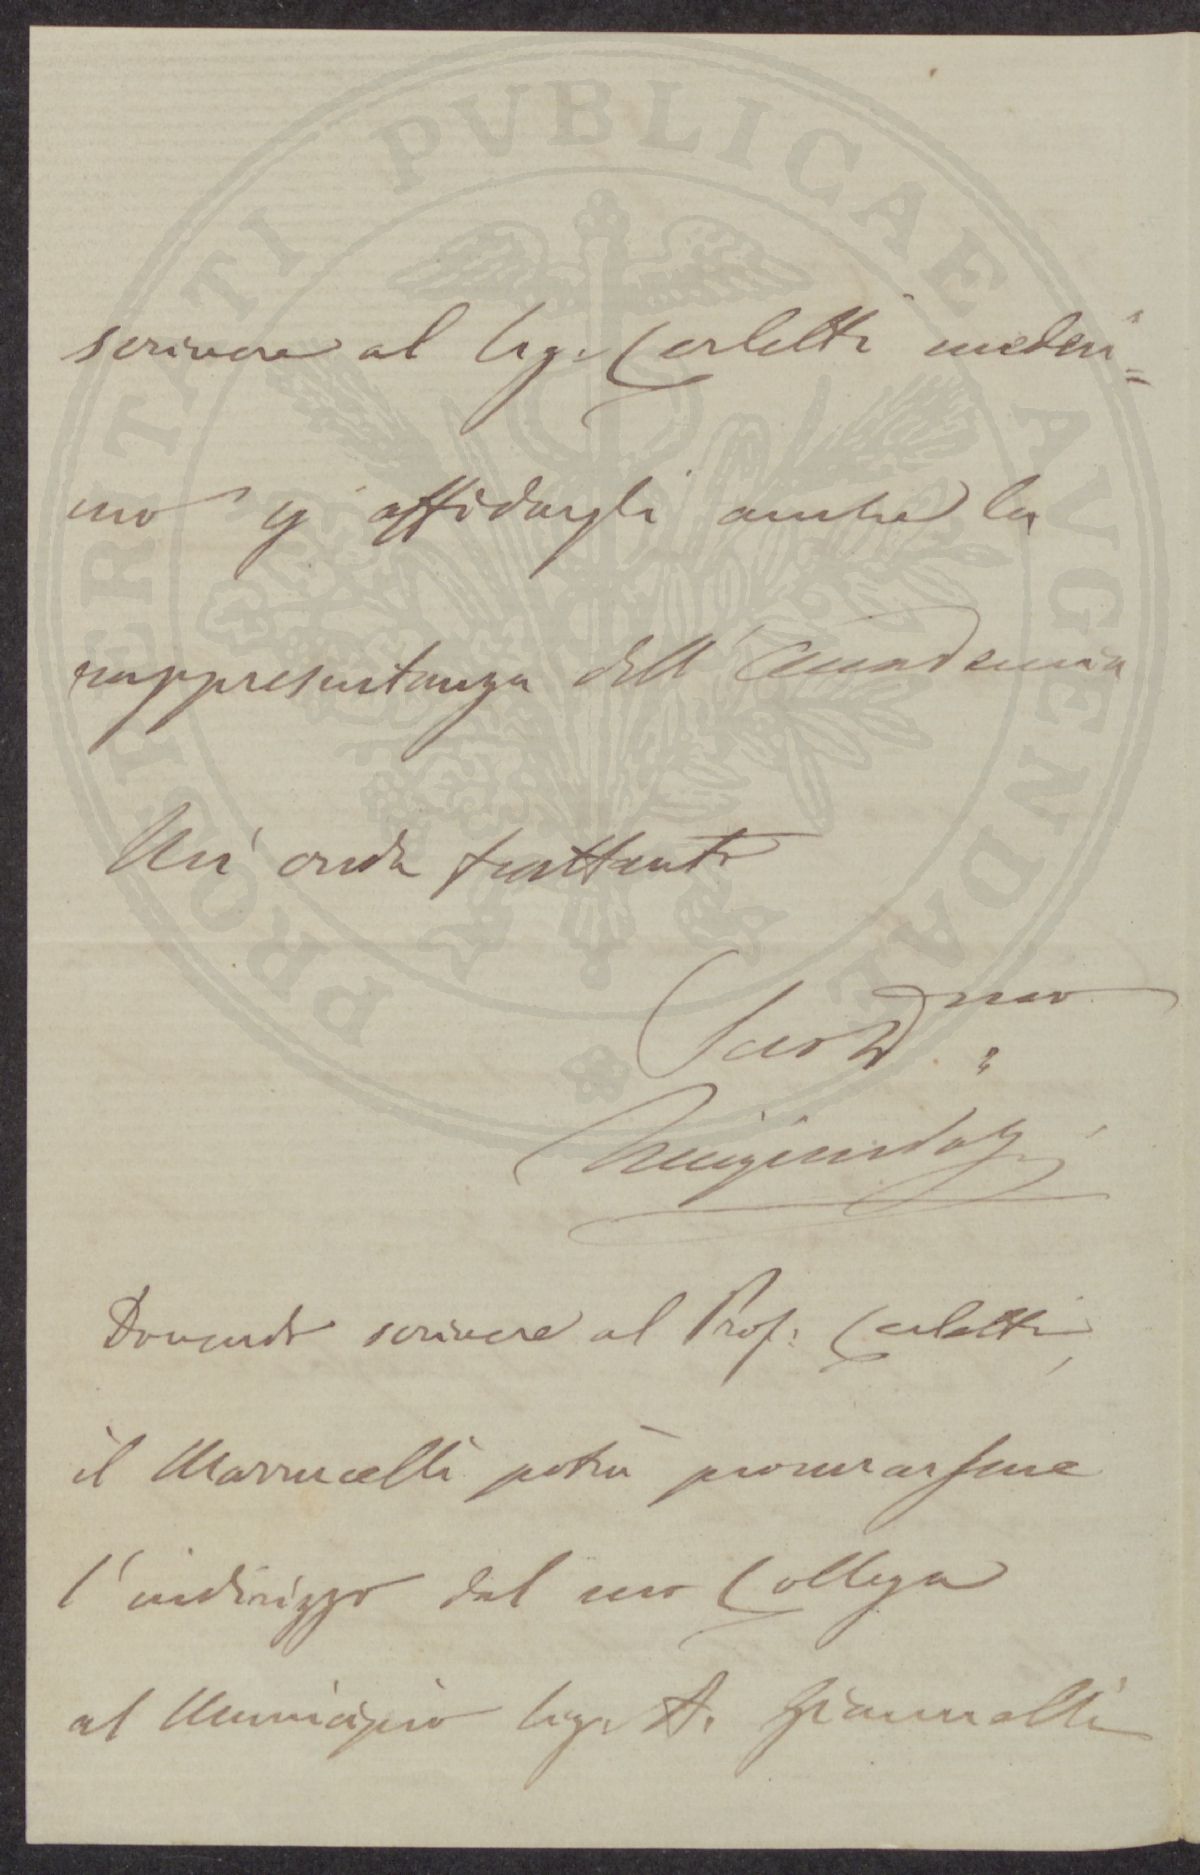 PROSPERITATI PVBLICAE AVGENDAE
scrivere al Sig. Carletti medesi=
mo p affidargli anche la
rappresentanza dell'Accademia
Mi creda frattanto
Suo Dmo
Dovendo scrivere al Prof. Carletti,
il Marrucelli potrà procurarsene
l'indirizzo dal suo Collega
al Municipio Sig. A. Giannelli